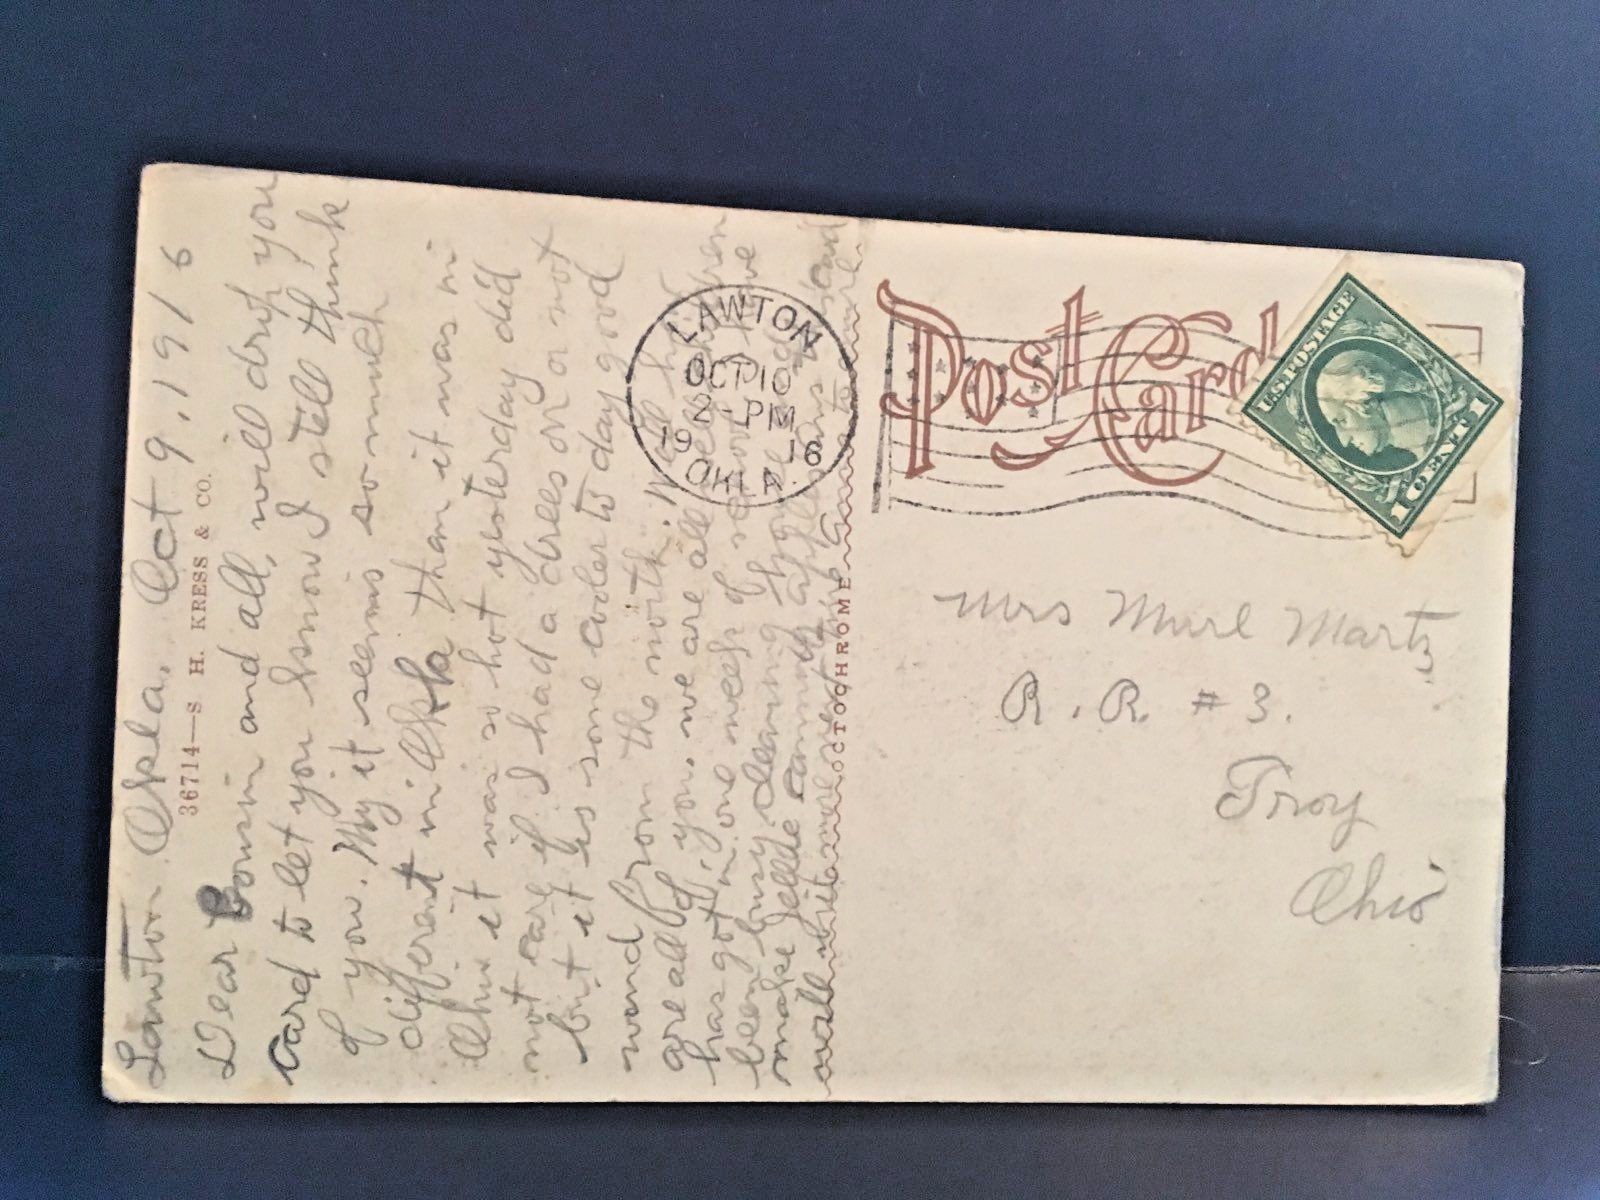 Lawton Okla. Oct 9, 1916
36714—S H. KRESS & CO.
Dear Cousin and all, will drop you
card to let you know I still think
of you. My it seems so much
different in Okla than it was in
Ohio it was so hot yesterday did
not care if I had a dress on or not
but it is some cooler to day good
wind from the north. How
are all of you. we are all well
has got in one week of school have
been busy cleaning
make jelly canning apples
will write
OCTOCHROME
LAWTON
OCT 10
2-PM
1916
OKLA.
Post Card
U.S. POSTAGE
1 CENT 1
Mrs Murl Marts
R. R. # 3.
Troy
Ohio